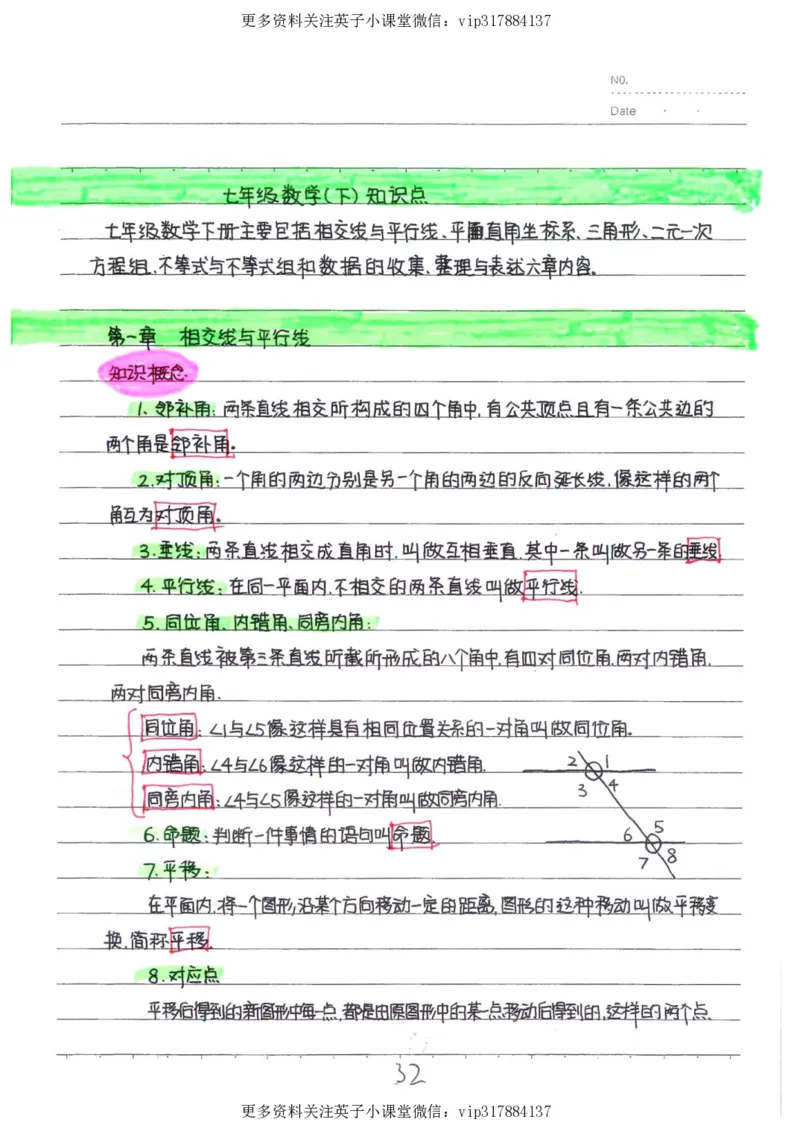 更多资料关注英子小课堂微信：vip317884137
NO.
Date
七年级数学(下)知识点
七年级数学下册主要包括相交线与平行线、平面直角坐标系、三角形、二元一次
方程组、不等式与不等式组和数据的收集、整理与表述六章内容。
第一章 相交线与平行线
知识概念
1. 邻补角：两条直线相交所构成的四个角中,有公共顶点且有一条公共边的
两个角是邻补角。
2.对顶角:一个角的两边分别是另一个角的两边的反向延长线,像这样的两个
角互为对顶角。
3.垂线:两条直线相交成直角时,叫做互相垂直,其中一条叫做另一条的垂线
4.平行线:在同一平面内,不相交的两条直线叫做平行线.
5.同位角、内错角、同旁内角:
两条直线被第三条直线所截所形成的八个角中,有四对同位角,两对内错角,
两对同旁内角.
同位角:∠1与∠5像这样具有相同位置关系的一对角叫做同位角。
内错角:∠4与∠6像这样的一对角叫做内错角.
同旁内角:∠4与∠5像这样的一对角叫做同旁内角.
2 1
3 4
6 5
7 8
6.命题:判断一件事情的语句叫命题.
7.平移:
在平面内,将一个图形沿某个方向移动一定的距离,图形的这种移动叫做平移变
换,简称平移.
8.对应点
平移后得到的新图形中每一点,都是由原图形中的某一点移动后得到的,这样的两个点
32
更多资料关注英子小课堂微信：vip317884137